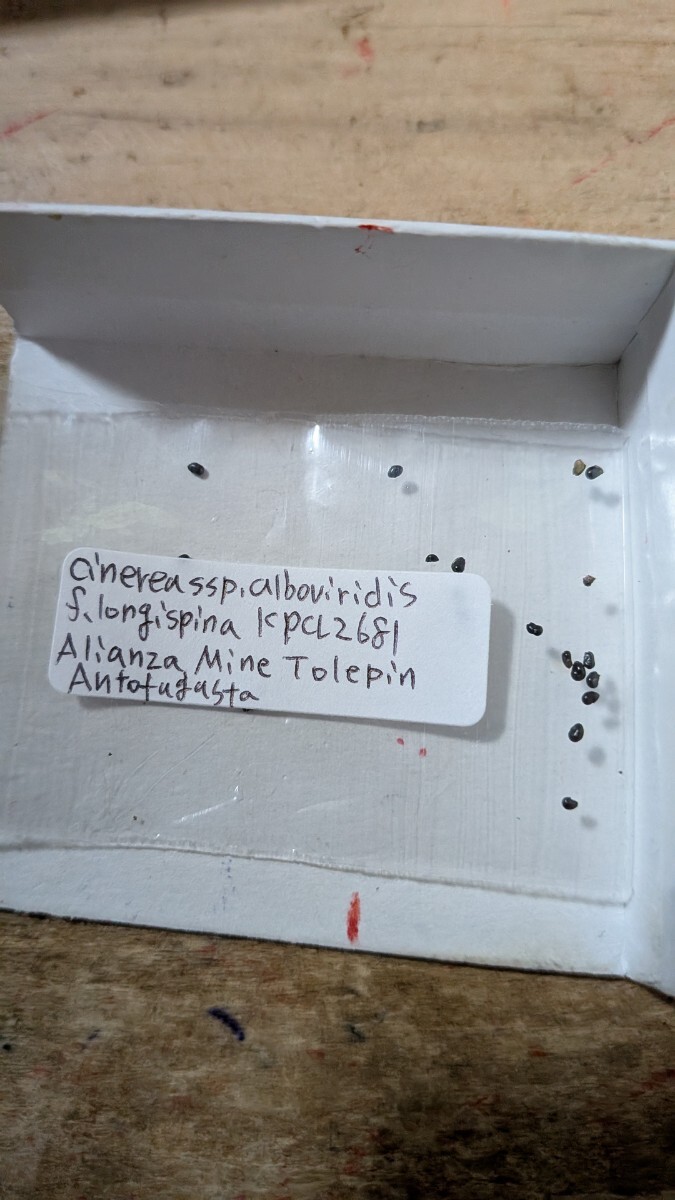 cinerea ssp. alboviridis
f. longispina KPCL2681
Alianza Mine Tolepin
Antofugasta